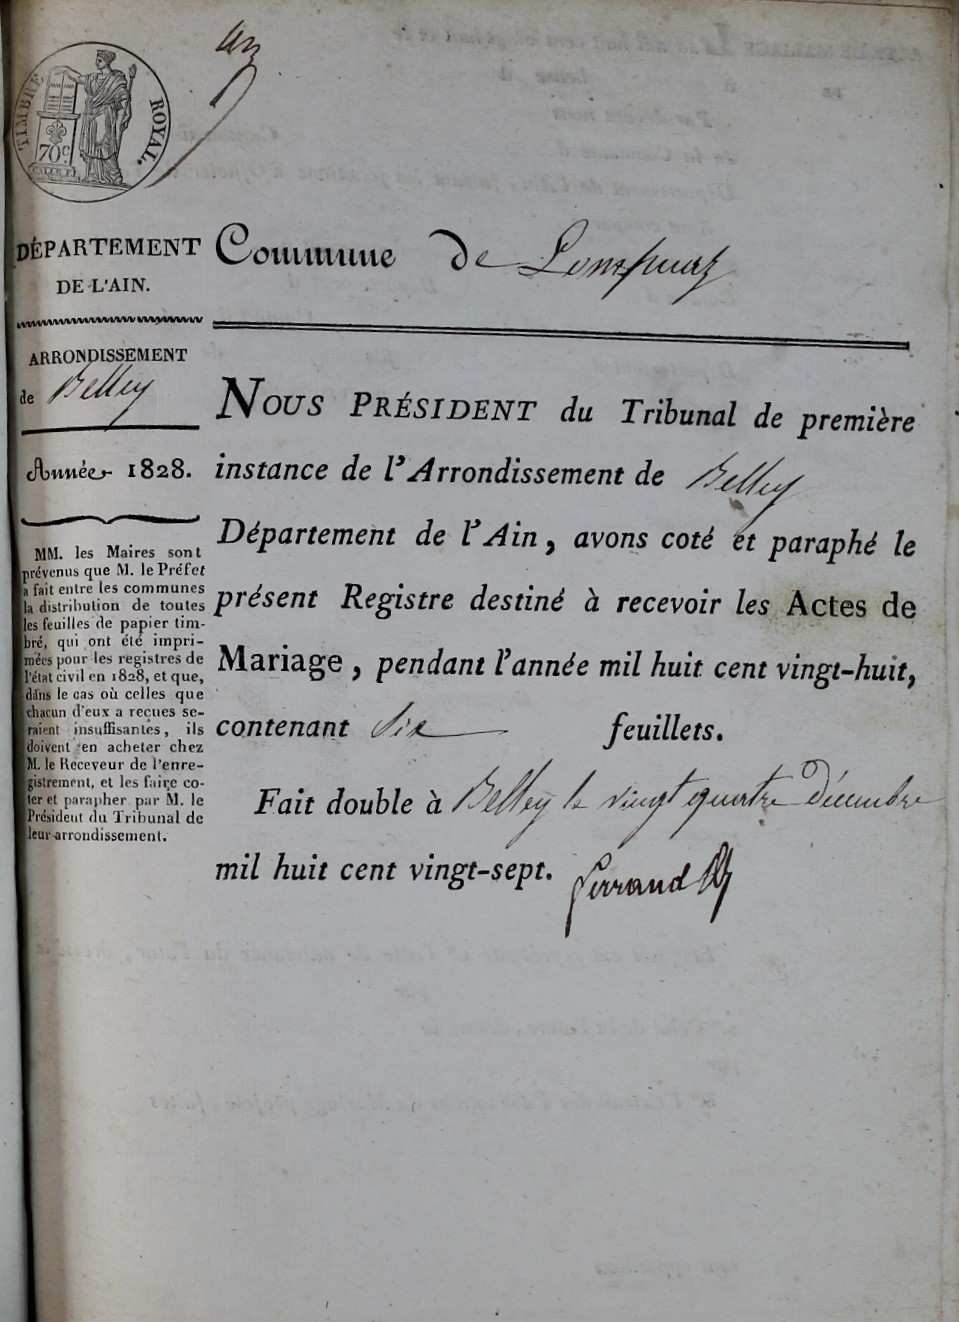 TIMBRE ROYAL.
70 c
DÉPARTEMENT
DE L'AIN.
ARRONDISSEMENT
de Belley
Année 1828.
MM. les Maires sont
prévenus que M. le Préfet
a fait entre les communes
la distribution de toutes
les feuilles de papier tim-
bré, qui ont été impri-
mées pour les registres de
l'état civil en 1828, et que,
dans le cas où celles que
chacun d'eux a reçues se-
raient insuffisantes, ils
doivent en acheter chez
M. le Receveur de l'enre-
gistrement, et les faire co-
ter et parapher par M. le
Président du Tribunal de
leur arrondissement.
Commune de Lompnaz
NOUS PRÉSIDENT du Tribunal de première
instance de l'Arrondissement de Belley
Département de l'Ain, avons coté et paraphé le
présent Registre destiné à recevoir les Actes de
Mariage, pendant l'année mil huit cent vingt-huit,
contenant Six feuillets.
Fait double à Belley le vingt quatre Décembre
mil huit cent vingt-sept.